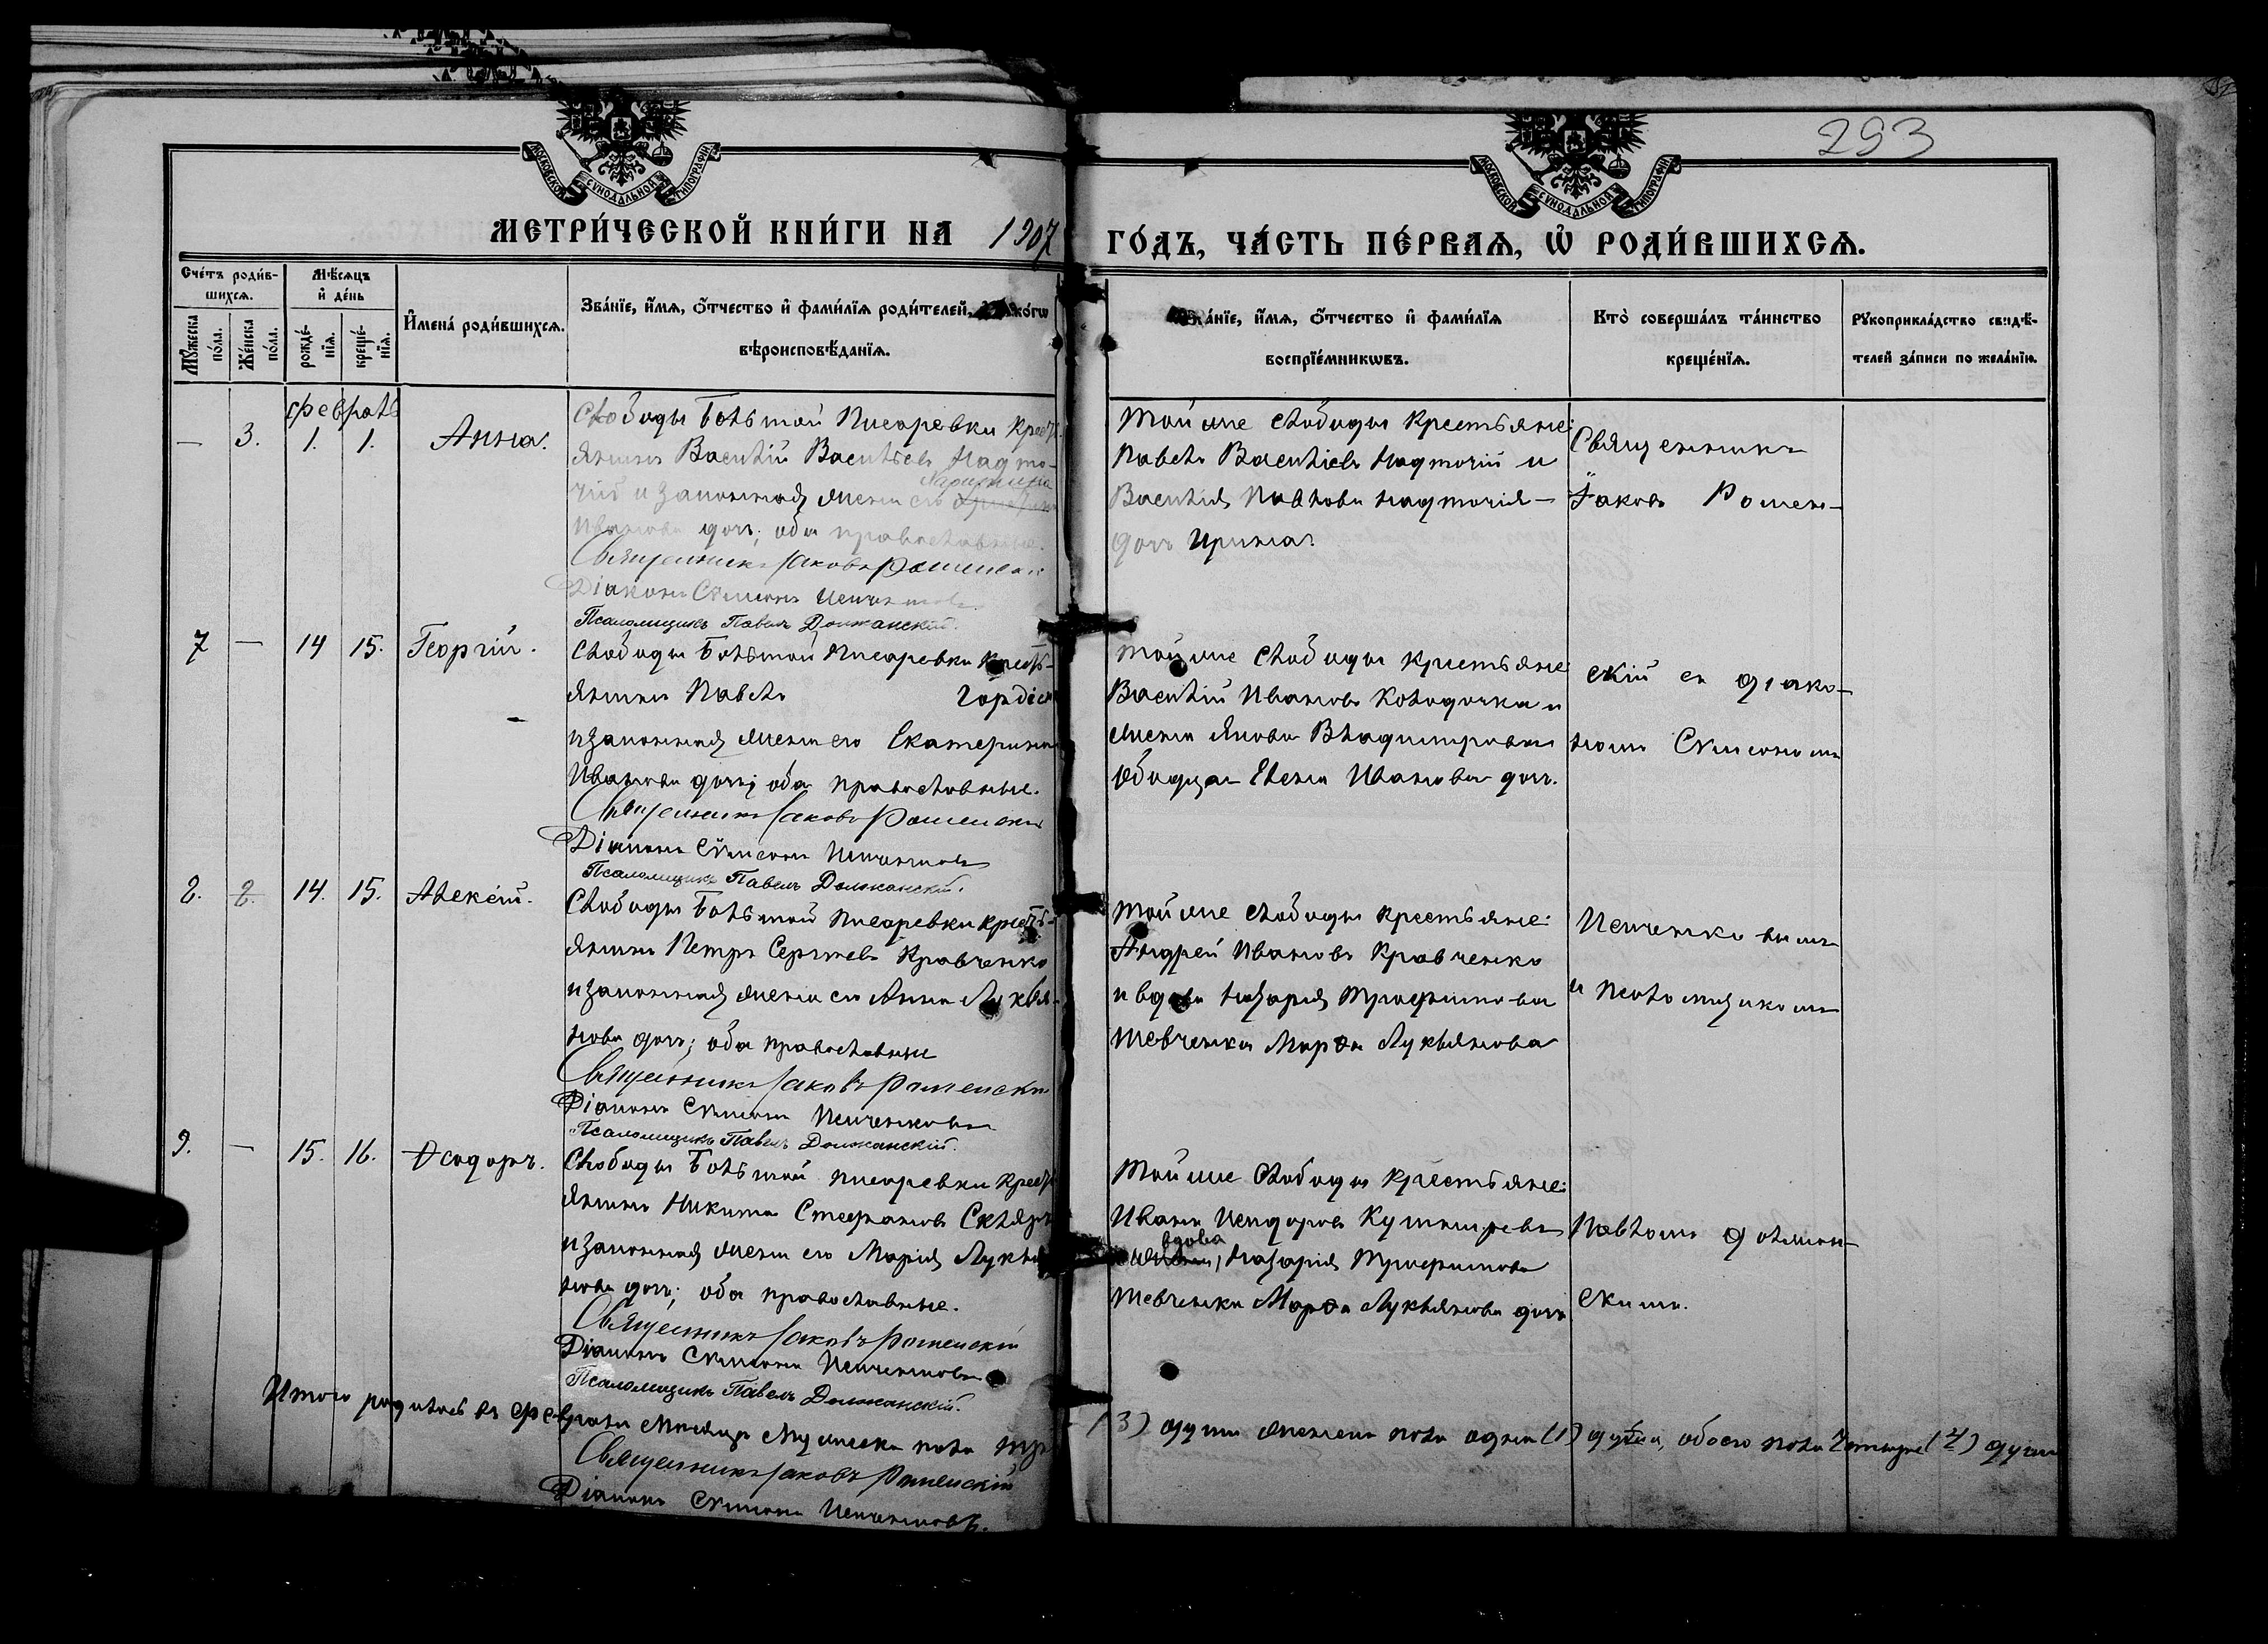 293
МОСКОВСКОЙ СУНОДАЛЬНОЙ ТИПОГРАФІИ
МОСКОВСКОЙ СУНОДАЛЬНОЙ ТИПОГРАФІИ
МЕТРИ́ЧЕСКОЙ КНИ́ГИ НА 1907 ГО́ДЪ, ЧА́СТЬ ПЕ́РВАѦ, Ѡ҆ РОДИ́ВШИХСѦ.
Сче́тъ роди́в-
шихсѧ.
Мꙋ́жеска по́ла.
Же́нска по́ла.
Мѣ́сѧцъ
и҆ де́нь
рожде́-
нїѧ.
креще́-
нїѧ.
И҆мена̀ роди́вшихсѧ.
Зва́нїе, и҆́мѧ, ѻ҆́тчество и҆ фами́лїѧ роди́телей, ко́гѡ
вѣроисповѣ́данїѧ.
а́нїе, и҆́мѧ, ѻ҆́тчество и҆ фами́лїѧ
воспрїе́мникѡвъ.
Кто̀ соверша́лъ та́инство
креще́нїѧ.
Рꙋкоприкла́дство свидѣ́-
телей за́писи по жела́нїю.
февраль
— 3. 1. 1. Анна.
Слободы Большой Писаревки кресть-
янинъ Василій Васильевъ Надто-
чій и законная жена его
Иванова дочь; оба православные.
Священникъ Іаковъ Роменскій
Діаконъ Сѵмеонъ
Псаломщикъ Павелъ Должанскій.
Той же слободы крестьяне:
Павелъ Васильевъ Надточій и
Василія Павлова Надточія
дочь Ирина.
Священникъ
Іаковъ Ромен-
7 — 14 15. Георгій.
Слободы Большой Писаревки кресть-
янинъ Павелъ Гордіен
и законная жена его Екатерина
Иванова дочь; оба православные.
Священникъ Іаковъ Роменскій
Діаконъ Сѵмеонъ
Псаломщикъ Павелъ Должанскій.
Той же слободы крестьяне:
Василій Ивановъ Колодочка и
жена Якова Владимірова
Ободца Елена Иванова дочь.
скій съ діако-
номъ Сѵмеономъ
8. 8. 14. 15. Алексій.
Слободы Большой Писаревки кресть-
янинъ Петръ Сергѣевъ Кравченко
и законная жена его Анна Лукья-
нова дочь; оба православные
Священникъ Іаковъ Роменскій
Діаконъ Сѵмеонъ
Псаломщикъ Павелъ Должанскій.
Той же слободы крестьяне:
Андрей Ивановъ Кравченко
и вдова Назарія Трофимова
Шевченки Марѳа Лукьянова
и псаломщикомъ
9. — 15. 16. Ѳеодоръ.
Слободы Большой Писаревки кресть
янинъ Никита Стефановъ Скляръ
и законная жена его Марія Лукья
нова дочь; оба православные.
Священникъ Іаковъ Роменскій
Діаконъ Сѵмеонъ
Псаломщикъ Павелъ Должанскій.
Той же слободы крестьяне:
Иванъ
вдова
Назарія Трофимова
Шевченки Марѳа Лукьянова дочь
Павломъ Должан-
скимъ.
Итого родилось въ февралѣ мѣсяцѣ мужеска пола три (3) души женска пола одна (1) душа, обоего пола четыре (4) души
Священникъ Іаковъ Роменскій
Діаконъ Сѵмеонъ